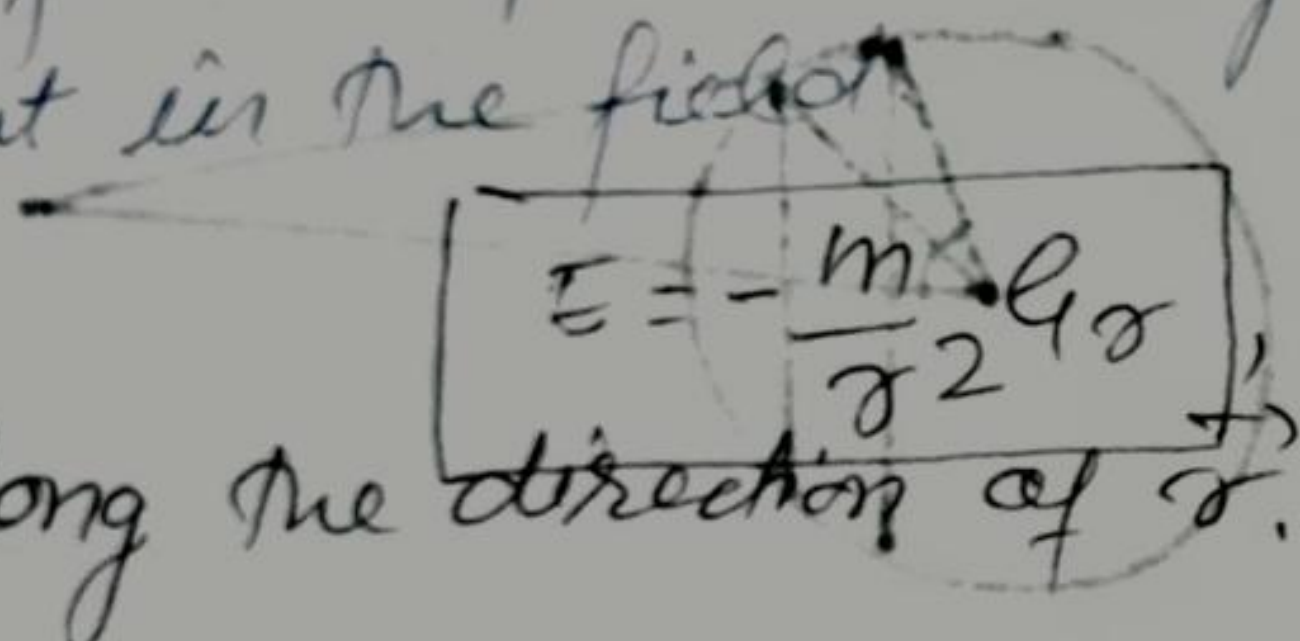 t in the field
E = - m/r² e_r,
ong the direction of r⃗.